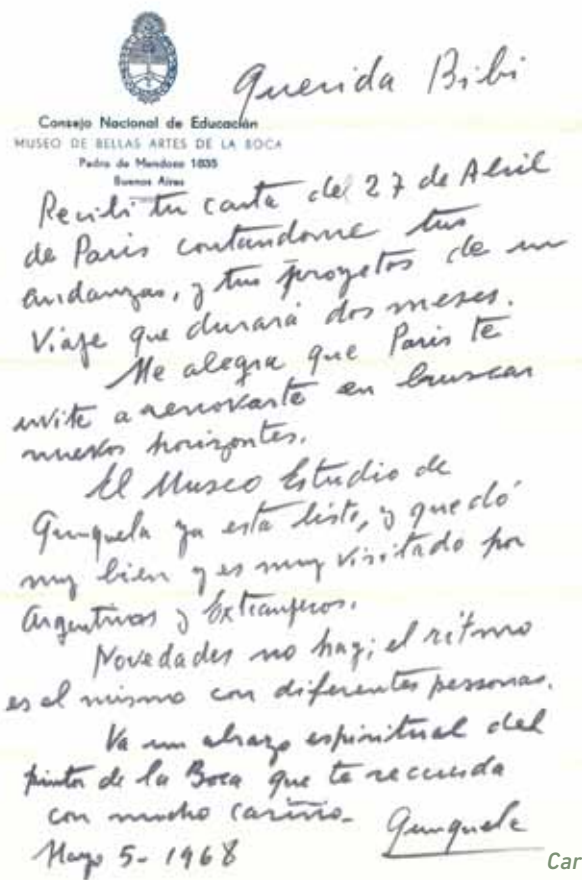 Querida Bibi
Consejo Nacional de Educación
MUSEO DE BELLAS ARTES DE LA BOCA
Pedro de Mendoza 1835
Buenos Aires
Recibí tu carta del 27 de Abril
de Paris contandome tus
andanzas, y tus proyetos de un
Viaje que durará dos meses.
Me alegra que Paris te
invite a renovarte en buscar
nuevos horizontes.
El Museo Estudio de
Quinquela ya está listo, y quedó
muy bien y es muy visitado por
Argentinos y Extranjeros.
Novedades no hay; el ritmo
es el mismo con diferentes personas.
Va un abrazo espiritual del
pintor de la Boca que te recuerda
con mucho cariño-
Quinquela
Mayo 5-1968
Car